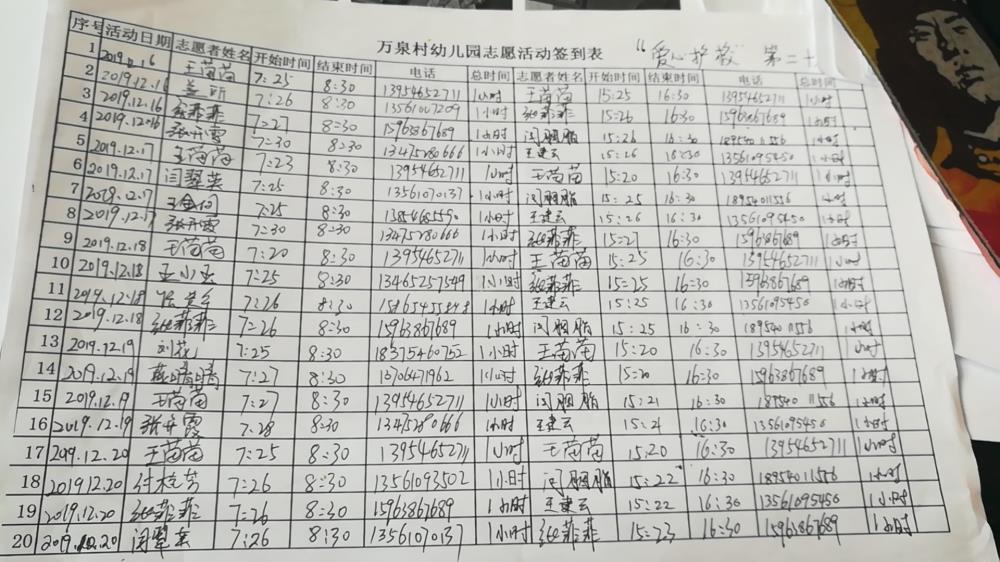 万泉村幼儿园志愿活动签到表 “爱心护驾” 第二十
序号 活动日期 志愿者姓名 开始时间 结束时间 电话 总时间 志愿者姓名 开始时间 结束时间 电话 总时间
1 2019.12.16 王苗苗 7:25 8:30 13954652711 1小时 王苗苗 15:25 16:30 13954652711 1小时
2 2019.12.16 7:26 8:30 13561007209 1小时 张菲菲 15:26 16:30 15963867689 1小时
3 2019.12.16 张菲菲 7:27 8:30 15963867689 1小时 闫胭脂 15:26 16:30 18954011556 1小时
4 2019.12.16 张开霞 7:30 8:30 13475280666 1小时 王建云 15:26 16:30 13561095450 1小时
5 2019.12.17 王苗苗 7:23 8:30 13954652711 1小时 王苗苗 15:20 16:30 13954652711 1小时
6 2019.12.17 闫翠英 7:25 8:30 13561070137 1小时 闫胭脂 15:25 16:30 18954011556 1小时
7 2019.12.17 7:25 8:30 1小时 王建云 15:26 16:30 13561095450 1小时
8 2019.12.17 张开霞 7:30 8:30 13475280666 1小时 张菲菲 15:27 16:30 15963867689 1小时
9 2019.12.18 王苗苗 7:20 8:30 13954652711 1小时 王苗苗 15:25 16:30 13954652711 1小时
10 2019.12.18 王小玉 7:25 8:30 13465257549 1小时 张菲菲 15:25 16:30 15963867689 1小时
11 2019.12.18 7:26 8:30 1小时 王建云 15:25 16:30 13561095450 1小时
12 2019.12.18 张菲菲 7:26 8:30 15963867689 1小时 闫胭脂 15:25 16:30 18954011556 1小时
13 2019.12.19 刘花 7:25 8:30 18375460752 1小时 王苗苗 15:20 16:30 13954652711 1小时
14 2019.12.19 7:27 8:30 1小时 张菲菲 15:20 16:30 15963867689 1小时
15 2019.12.19 王苗苗 7:27 8:30 13954652711 1小时 闫胭脂 15:21 16:30 18954011556 1小时
16 2019.12.19 张开霞 7:28 8:30 13475280666 1小时 王建云 15:21 16:30 13561095450 1小时
17 2019.12.20 王苗苗 7:25 8:30 13954652711 1小时 王苗苗 15:20 16:30 13954652711 1小时
18 2019.12.20 付桂芳 7:26 8:30 13561093502 1小时 闫胭脂 15:22 16:30 18954011556 1小时
19 2019.12.20 张菲菲 7:26 8:30 15963867689 1小时 王建云 15:22 16:30 13561095450 1小时
20 2019.12.20 闫翠英 7:26 8:30 13561070137 1小时 张菲菲 15:23 16:30 15963867689 1小时